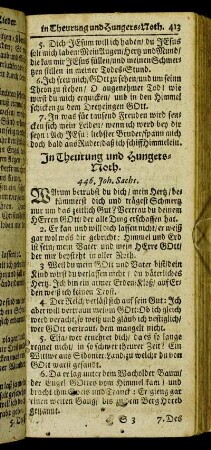 in Theurung und Hungers-Noth. 413
5. Dich JEsum will ich haben/ du JEsus
solt mich laben/ Mein Augen/ Hertz und Mund/
die kan mir JEsus füllen/ und meinen Schmer-
tzen stillen in meiner Todes-Stund.
6. Ich freu mich GOtt zu sehen/ und um seinen
Thron zu stehen/ O angenehmer Tod! wie
will ich da erquicket/ und in den Himmel
schicken zu dem Dreyeingen GOtt.
7. In was für tausend Freuden wird noch
In Theurung und Hungers-
Noth.
446. Joh. Sachs.
WArum betrübst du dich/ mein Hertz/ be-
kümmerst dich und trägest Schmertz
nur um das zeitlich Gut? Vertrau du deinem
HErren GOtt der alle Ding erschaffen hat.
2. Er kan und will dich lassen nicht/ er weiß
gar wol was dir gebricht: Himmel und Erd
ist sein/ mein Vater und mein HErre GOtt
der mir beysteht in aller Noth.
3. Weil du mein GOtt und Vater bist/ dein
Kind wirst du verlassen nicht/ du väterliches
Hertz. Ich bin ein armer Erden-Kloß/ auf Er-
den weiß ich keinen Trost.
4. Der Reich verläßt sich auf sein Gut: Ich
aber will vertrauen mein'm GOtt/ Ob ich gleich
werd veracht/ so weiß und gläub ich vestiglich/
wer GOtt vertraut/ dem mangelt nicht.
5. Elia/ wer ernehret dich/ da es so lange
regnet nicht/ in so schwerer theurer Zeit? Ein
Wittwe aus Sidonier-Land/ zu welcher du von
GOtt warst gesandt.
6. Da er lag unter dem Wacholder Baum/
der Engel GOttes vom Himmel kam/ und
bracht ihm Speis und Tranck: Er gieng gar
einen weiten Gang/ biß zu dem Berg Horeb
genannt.
S 3 7. Des